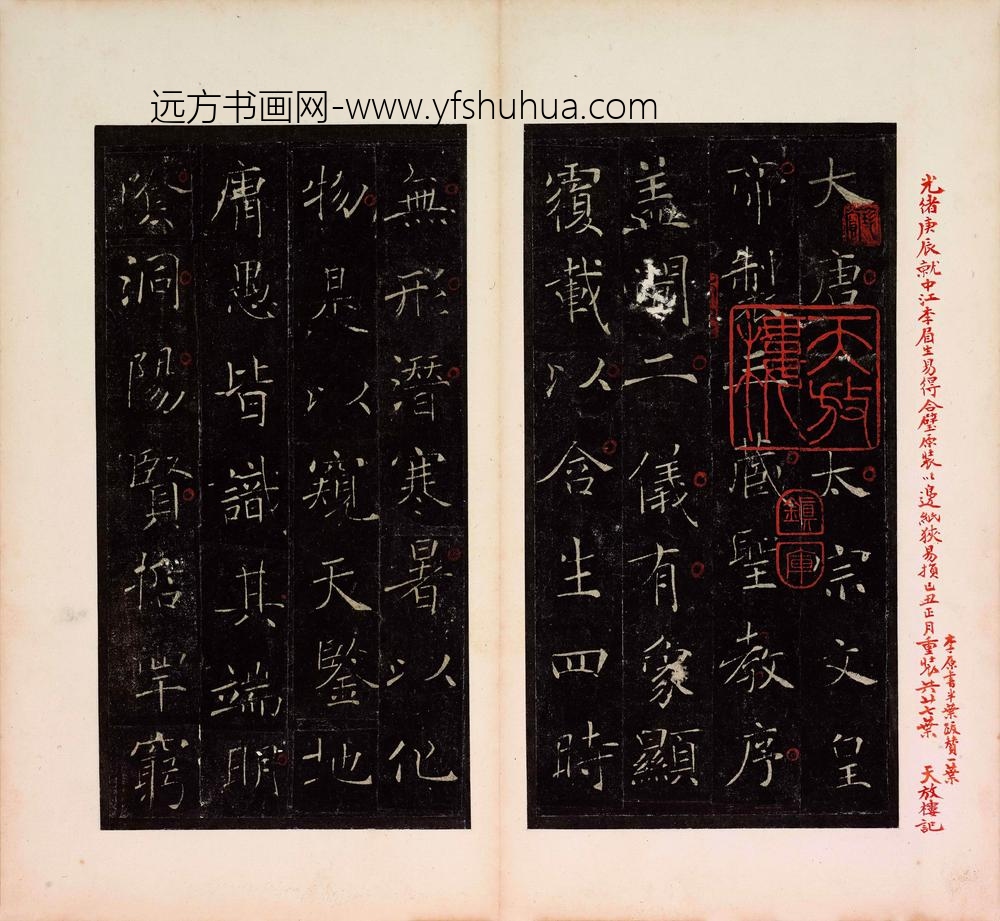 远方书画网-www.yfshuhua.com
光緒庚辰就中江李眉生易得合璧原裝以邊紙狹易損己丑正月重裝共廿七葉 天放樓記
李原書半葉跋贊一葉
大唐太宗文皇
帝製藏聖教序
盖聞二儀有象顯
覆載以含生四時
無形潛寒暑以化
物是以窺天鑒地
庸愚皆識其端明
陰洞陽賢哲罕窮
天放樓
鎮庫